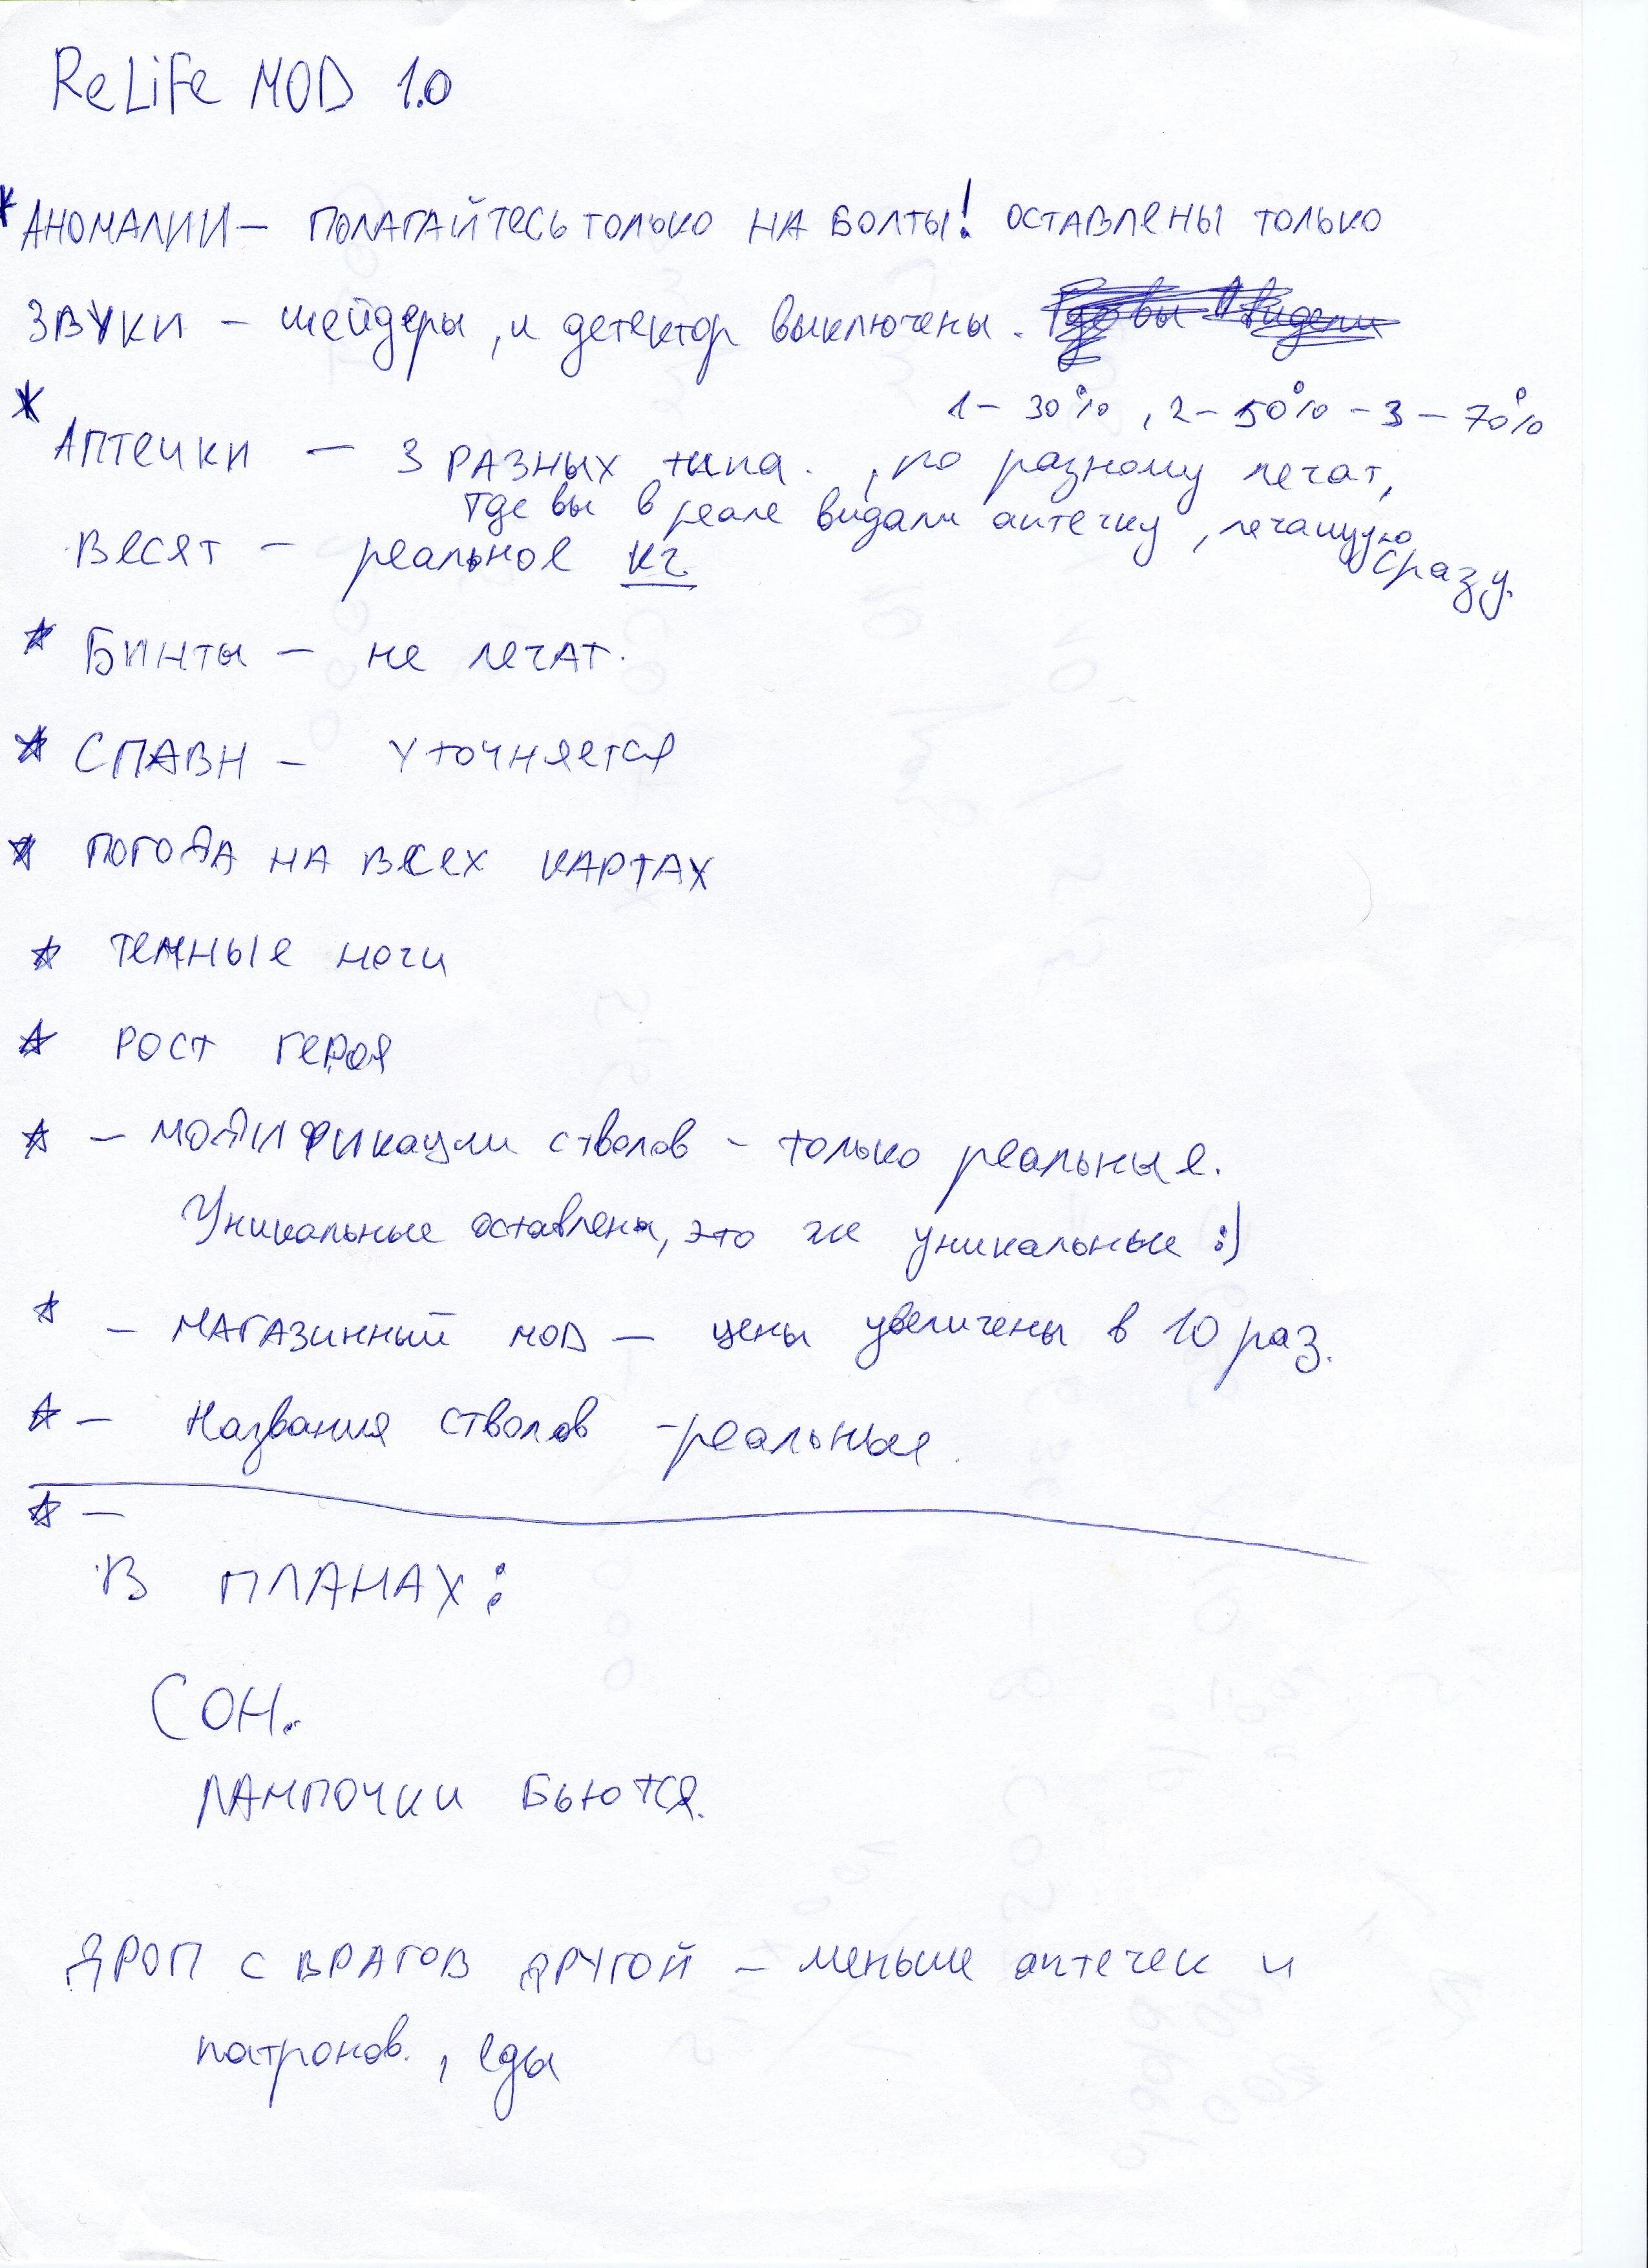 ReLiFe MOD 1.0
* АНОМАЛИИ – ПОЛАГАЙТЕСЬ ТОЛЬКО НА БОЛТЫ! ОСТАВЛЕНЫ ТОЛЬКО
ЗВУКИ – шейдеры, и детектор выключены.
*
1 – 30%, 2 – 50% – 3 – 70%
АПТЕЧКИ – 3 РАЗНЫХ типа. , по разному лечат,
где вы в реале видали аптечку, лечащую сразу.
Весят – реальное кг.
* Бинты – не лечат.
* СПАВН – уточняется
* ПОГОДА НА ВСЕХ КАРТАХ
* Темные ночи
* РОСТ ГЕРОЯ
* – модификации стволов – только реальные.
Уникальные оставлены, это же уникальные :)
* – МАГАЗИННЫЙ МОД – цены увеличены в 10 раз.
* – Названия стволов – реальные.
* –
В ПЛАНАХ:
СОН.
ЛАМПОЧКИ БЬЮТСЯ.
ДРОП С ВРАГОВ ДРУГОЙ – меньше аптечек и
патронов. , еды